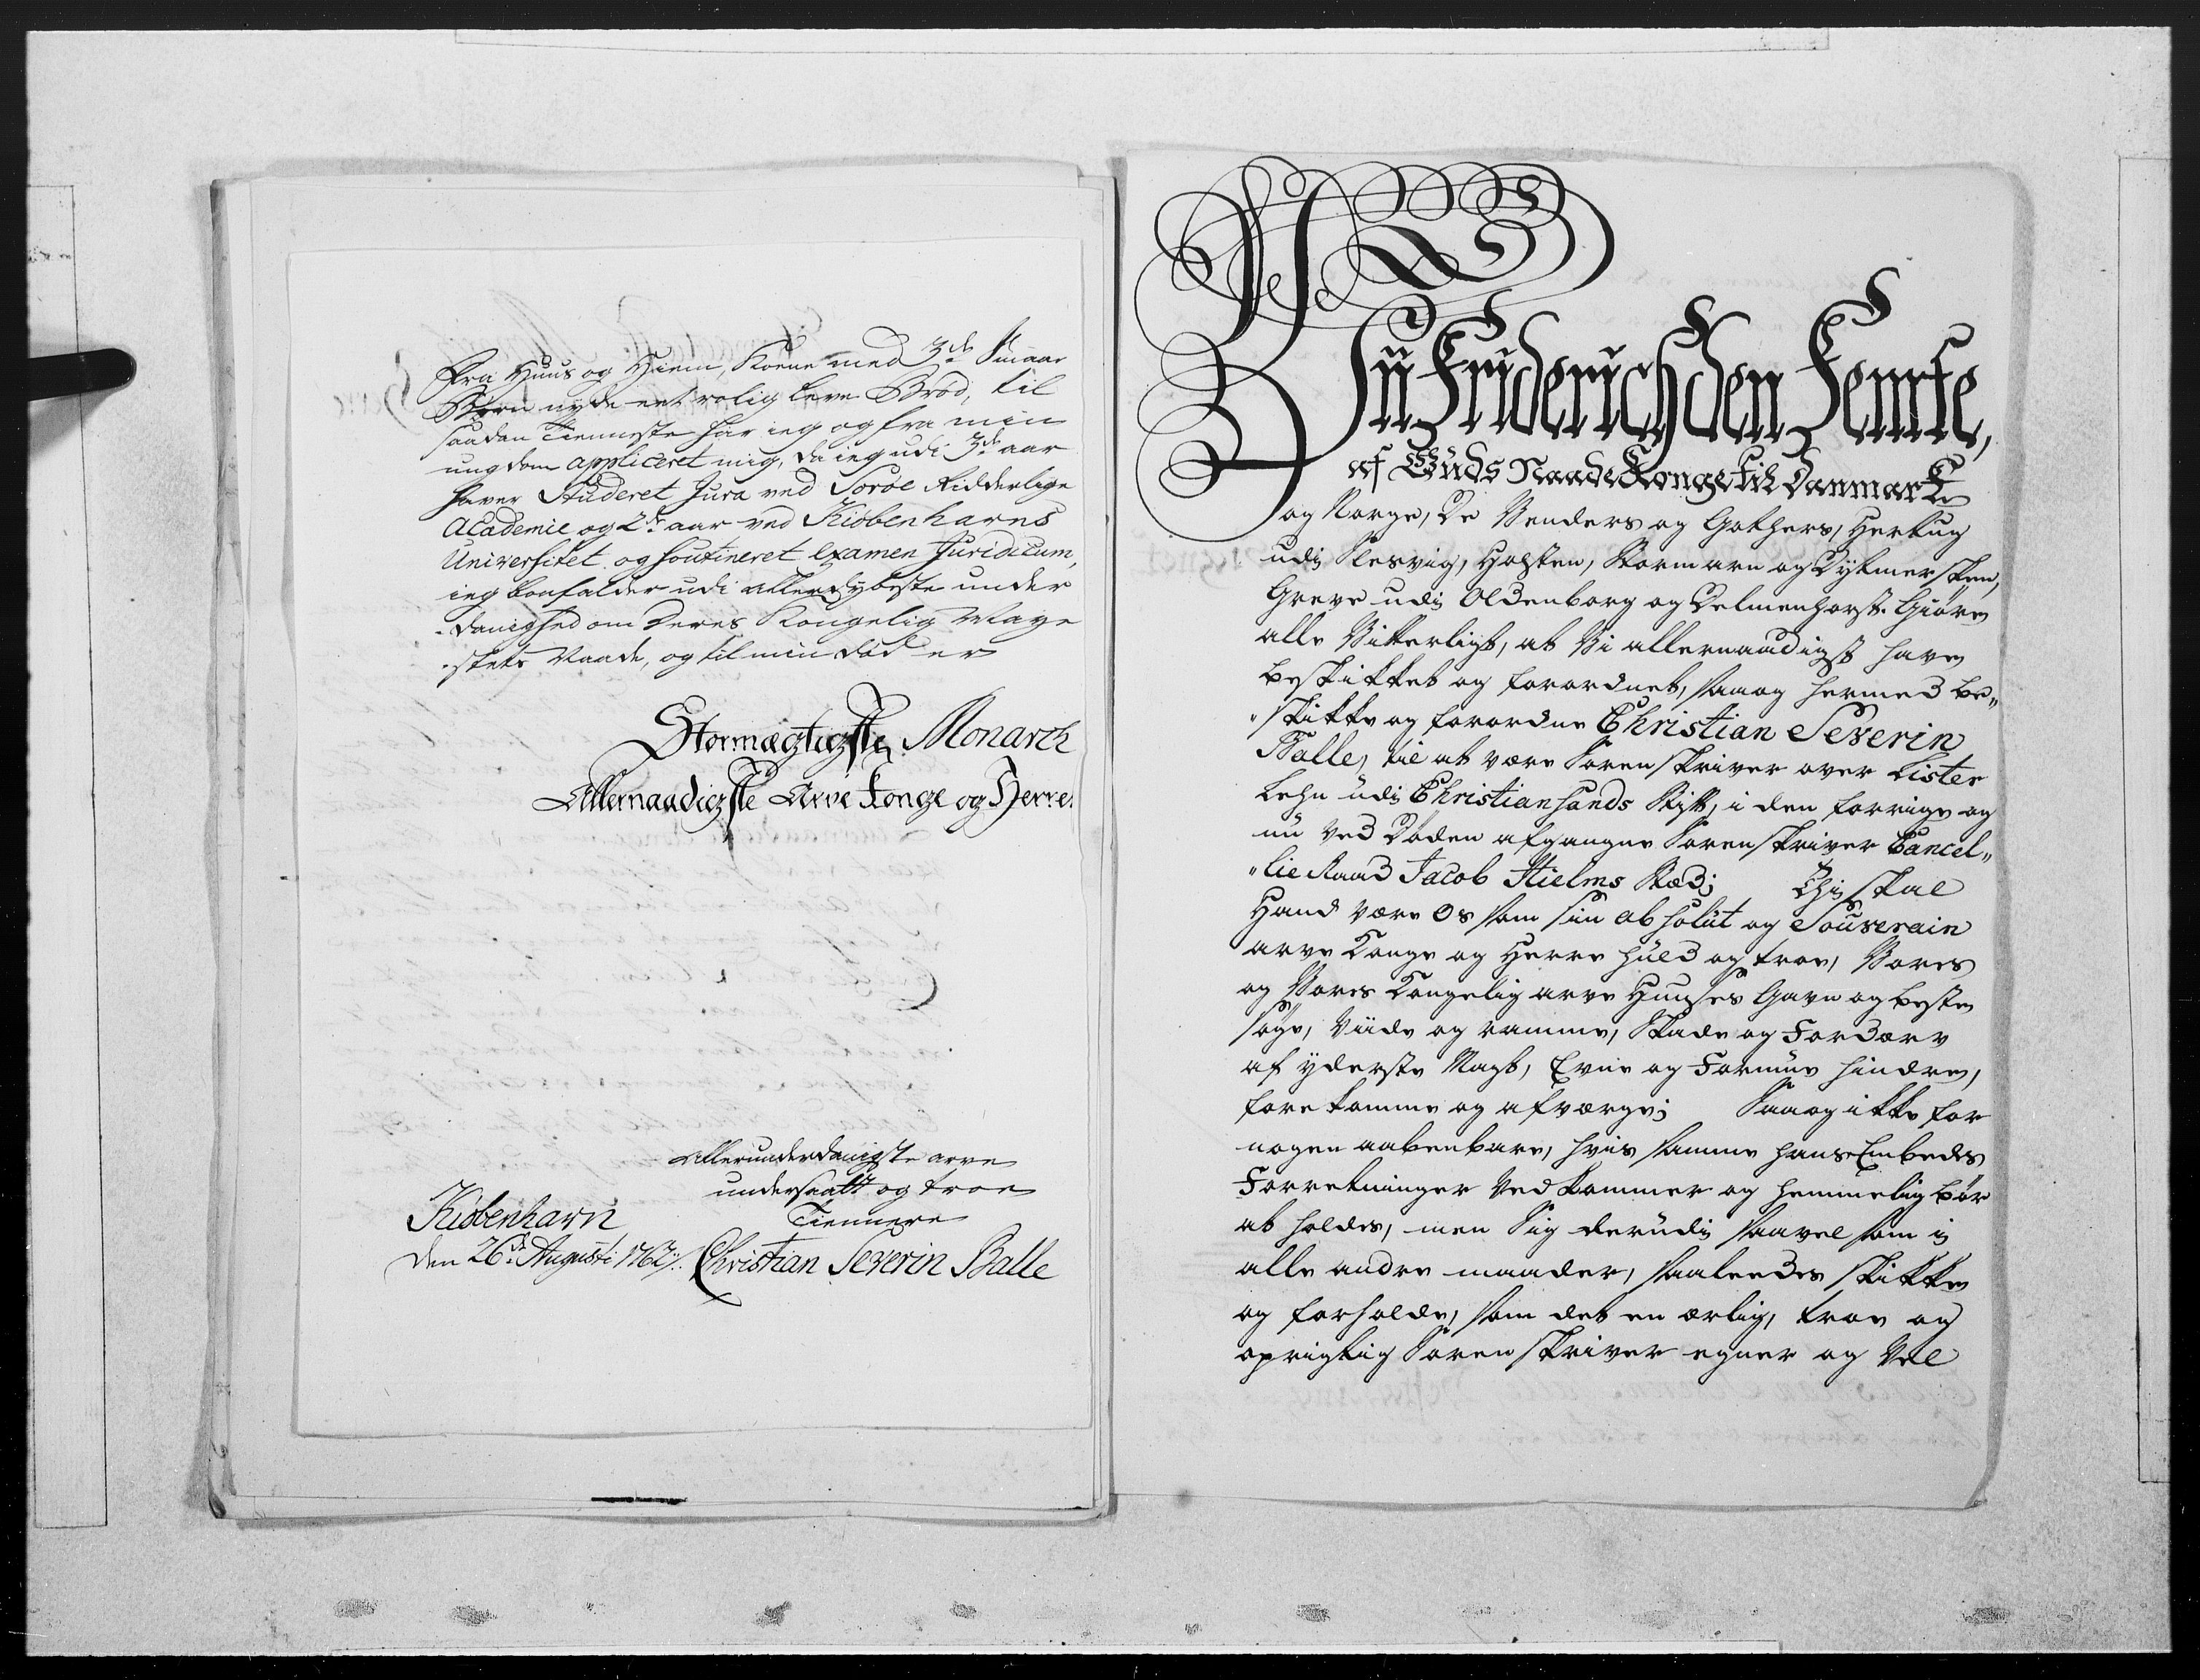 fra Huus og Hiem, Kone med 3de Smaae
Børn nyde eet rolig leve Brød, til
saadan Tienneste har ieg og fra min
ungdom appliceret mig, da ieg udi 3de aar
haver Studeret Jura ved Soröe Ridderlige
Academie og 2de aar ved Kiöbenhavns
Universitet og soutineret Examen Juridicum,
ieg bonfalder udi allerdybeste under
-danighed om Deres Kongelig Maye
-stets Naade, og til min död er
Stormægtigste Monarch
Allernaadigste Arve Konge og Herre.
Allerunderdanigste arve
undersaatt og troe
Tiennere
Kiöbenhavn
den 26de Augusti 1762. Christian Severin Balle
Vii Friderich den Femte,
af Guds Naade Konge til Danmark
og Norge, De Venders og Gothers, Hertug
udi Slesvig, Holsten, Stormarn og Dytmersken,
Greve udi Oldenborg og Delmenhorst. Giøre
alle Vitterligt, at Vi allernaadigst have
beskikket og forordnet, saa og hermed be„
„skikke og forordne Christian Severin
Balle, til at være Sorenskriver over Lister
Lehn udi Christiansands Stift, i den forrige og
nu ved Døden afgangne Sorenskriver Cancel„
„lie Raad Jacob Stielms Stæd; Thi skal
Hand være Os som sin absolut og Souverain
arve Konge og Herre huld og troe, Vores
og Vores Kongelig arve Huuses Gavn og beste
søge, Viide og ramme, Skade og Fordærv
af yderste Magt, Evne og Formue hindre,
forekomme og afværge; Saa og ikke for
nogen aabenbare, hvis samme hans Embedes
Forretninger Vedkommer og hemmelig bør
at holdes, men sig derudi saavel som i
alle andre maader, saaleedes skikke
og forholde, som det en ærlig, troe og
oprigtig Sorenskriver egner og Vel